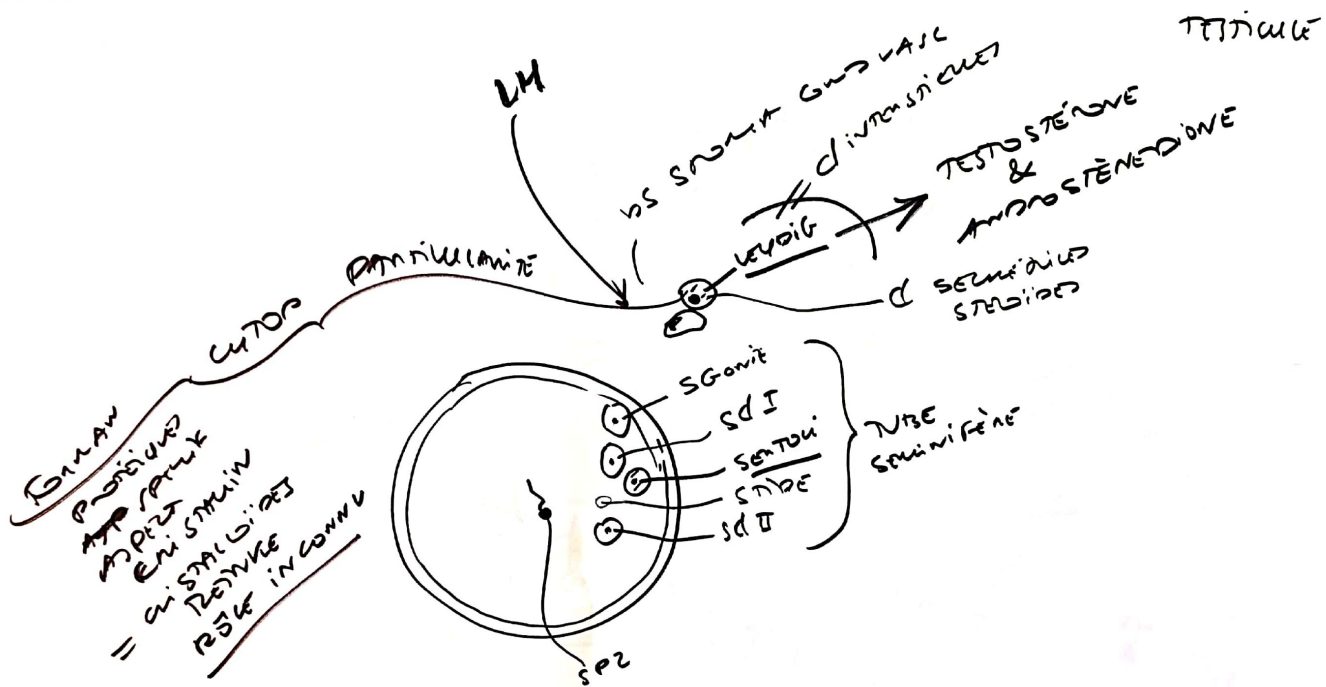 TESTICULE
LH
DS STROMA CONJ VASC
C INTERSTICIELLES
TESTOSTÉRONE
&
ANDROSTÈNEDIONE
LEYDIG
C SECRÉTRICES
STEROÏDES
PARTICULARITÉ
CYTOP
FORMAT°
PROTÉIQUES
ASPECT
CRISTALLIN
= CRISTALLOÏDES
REINKE
RÔLE INCONNU
SGONIE
SC I
SERTOLI
STIDE
SC II
TUBE
SEMINIFÈRE
SPZ